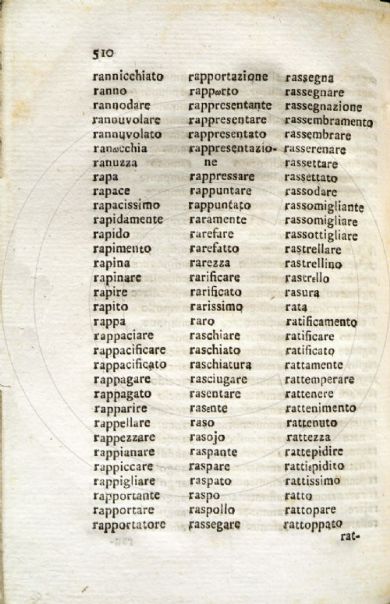 510
rannicchiato
ranno
rannodare
rannuvolare
rannuvolato
ranωcchia
ranuzza
rapa
rapace
rapacissimo
rapidamente
rapido
rapimento
rapina
rapinare
rapire
rapito
rappa
rappaciare
rappacificare
rappacificato
rappagare
rappagato
rapparire
rappellare
rappezzare
rappianare
rappiccare
rappigliare
rapportante
rapportare
rapportatore
rapportazione
rappωrto
rappresentante
rappresentare
rappresentato
rappresentazio-
ne
rappressare
rappuntare
rappuntato
raramente
rarefare
rarefatto
rarezza
rarificare
rarificato
rarissimo
raro
raschiare
raschiato
raschiatura
rasciugare
rasentare
rasente
raso
rasojo
raspante
raspare
raspato
raspo
raspollo
rassegare
rassegna
rassegnare
rassegnazione
rassembramento
rassembrare
rasserenare
rassettare
rassettato
rassodare
rassomigliante
rassomigliare
rassottigliare
rastrellare
rastrellino
rastrello
rasura
rata
ratificamento
ratificare
ratificato
rattamente
rattemperare
rattenere
rattenimento
rattenuto
rattezza
rattepidire
rattiepidito
rattissimo
ratto
rattopare
rattoppato
rat-